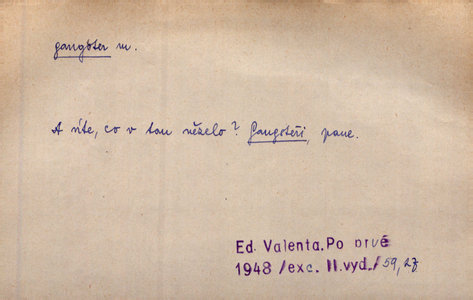 gangster m.
A víte, co v tom vězelo? Gangsteři, pane.
Ed. Valenta. Po prvé
1948 /exc. II.vyd./ 59, 27